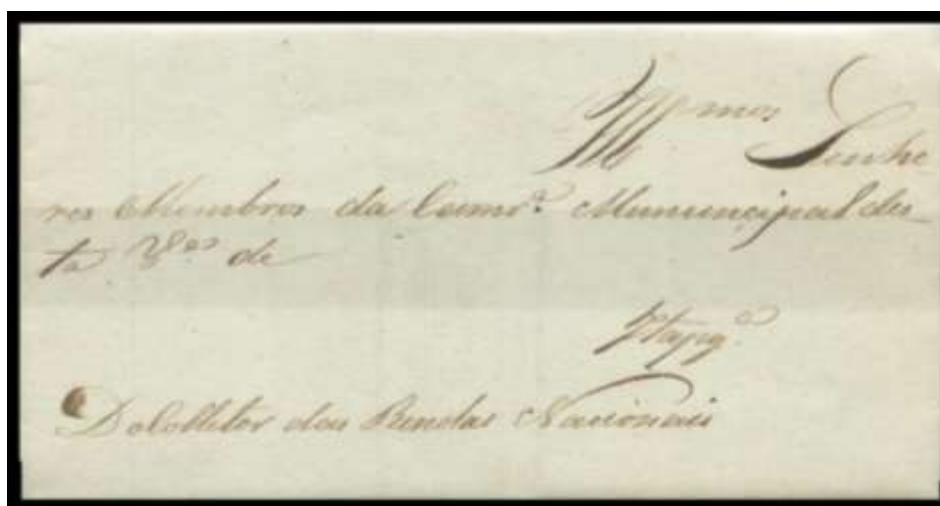 Ill.mos Senho
res Membros da Camr.ª Mununcipal des
ta V.ª de
Itapg.ª
Do Colletor das Rendas Nacionais